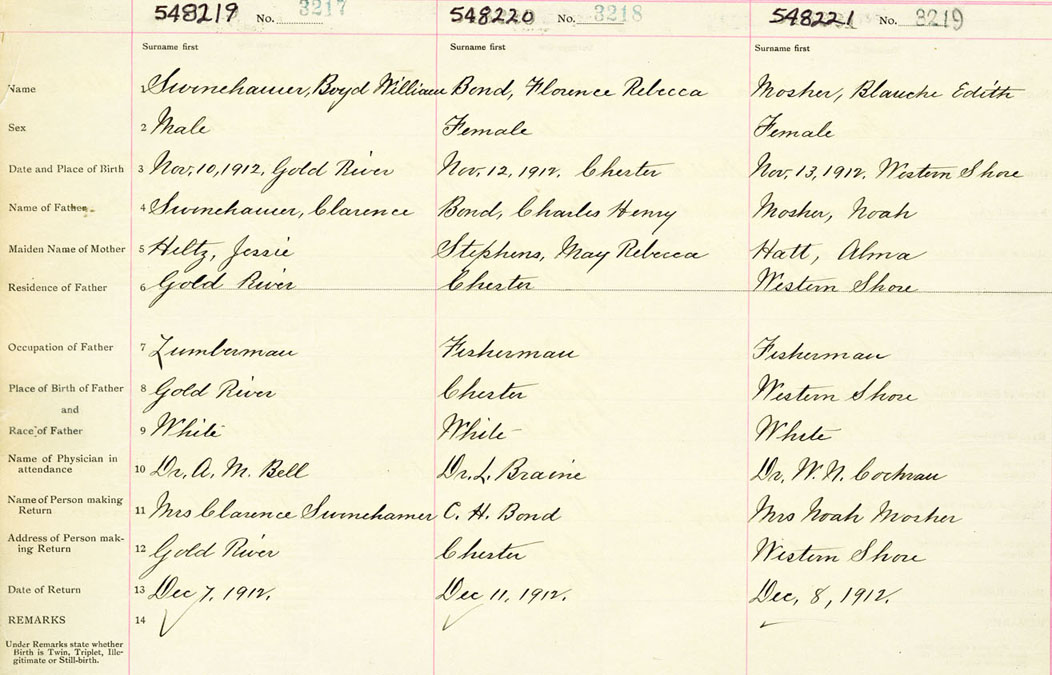 548219 No. 3217 548220 No. 3218 548221 No. 3219
Surname first Surname first Surname first
Name 1 Swinehamer, Boyd William Bond, Florence Rebecca Mosher, Blanche Edith
Sex 2 Male Female Female
Date and Place of Birth 3 Nov. 10, 1912, Gold River Nov. 12, 1912. Chester Nov. 13, 1912. Western Shore
Name of Father 4 Swinehamer, Clarence Bond, Charles Henry Mosher, Noah
Maiden Name of Mother 5 Hiltz, Jessie Stephens, May Rebecca Hatt, Alma
Residence of Father 6 Gold River Chester Western Shore
Occupation of Father 7 Lumberman Fisherman Fisherman
Place of Birth of Father 8 Gold River Chester Western Shore
and
Race of Father 9 White White White
Name of Physician in
attendance 10 Dr. A. M. Bell Dr. L. Braine Dr. W. N. Cochran
Name of Person making
Return 11 Mrs Clarence Swinehamer C. H. Bond Mrs Noah Mosher
Address of Person mak-
ing Return 12 Gold River Chester Western Shore
Date of Return 13 Dec 7, 1912. Dec 11, 1912. Dec, 8, 1912.
REMARKS 14
Under Remarks state whether
Birth is Twin, Triplet, Ille-
gitimate or Still-birth.